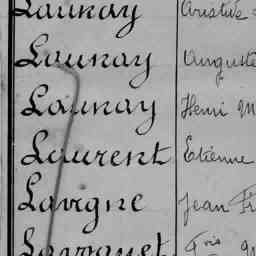 Launay Aristide
Launay Auguste
Launay Henri M
Laurent Etienne
Lavigne Jean Fr
Lavoquet Fois